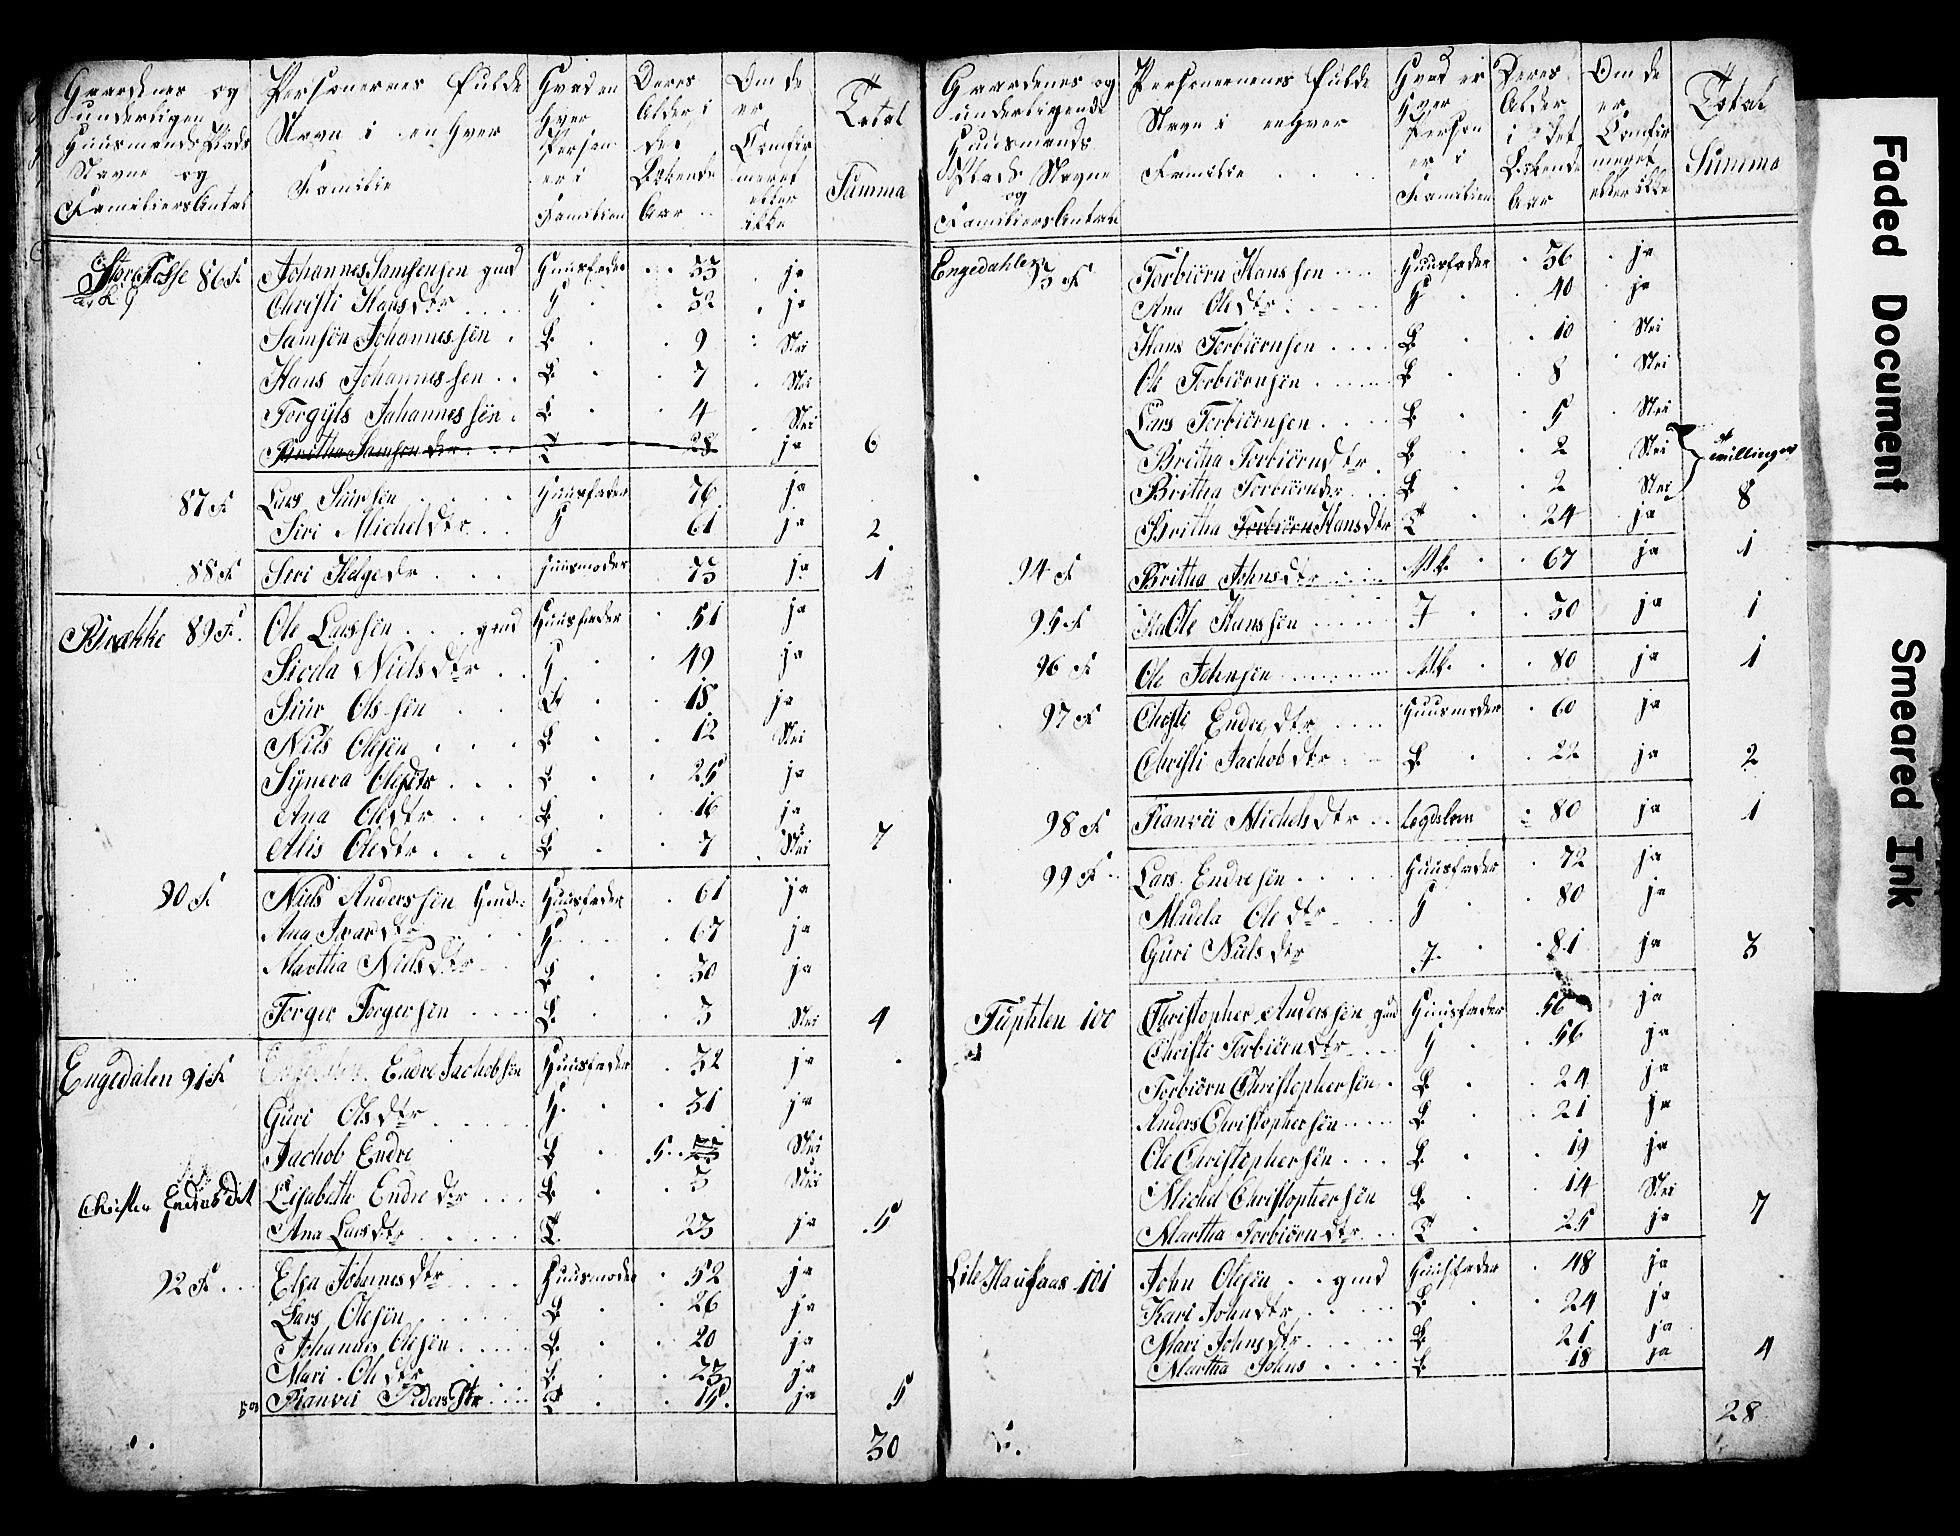 Gaardenes og
underligende
Huusmands Plads
Navne og
Familiers Antal
Personernes fulde
Navn i enhver
Familie
Hvad en
hver
Person
er i
Familien
Deres
Alder i
det
Løbende
Aar
Om de
er
Confir
meret
eller
ikke
Total
Summa
Store Fosse 86 F Johannes Samsonsen gmd Huusfader 33 ja
Christi Hans dtr H 32 ja
Samson Johannessøn B 9 Nei
Hans Johannessen B 7 Nei
Torgils Johannessøn B 4 Nei
Britha Samson dtr T 28 ja 6
87 F Lars Siursøn Huusfader 76 ja
Siri Michel dtr H 61 ja 2
88 F Siri Helge dr Huusmoder 73 ja 1
Brække 89 F. Ole Larssøn gmd Huusfader 51 ja
Niels dtr H 49 ja
Siur Olssøn B 18 ja
Nils Olesøn B 12 Nei
Syneva Olesdtr B 25 ja
Ana Ole dtr B 16 ja
Alis Ole dtr B 7 Nei 7
90 F Niels Anderssøn Huusfader 61 ja
Ana Ivar dtr H 67 ja
Martha Niels dtr B 30 ja
Torger Torgersøn B 3 Nei 4
Engedalen 91 F Endre Jachobsøn Huusfader 32 ja
Guri Ols dtr H. 31 ja
Jachob Endre B 5 Nei
Christen Endres Dtt Lisabeth Endre dtr B 3 Nei
Ana Lars dtr T. 23 ja 5
92 F Elsa Johannes dtr Huusmoder 52 ja
Lars Olesøn B 26 ja
Johannes Olesøn B 20 ja
Mari Ole dtr B 23 ja
Ranvei Peders dtr T 15. ja 5
30
Gaardenes og
underligende
Huusmands
Plads Navne
og
Familiers Antal
Personernes fulde
Navn i enhver
Familie
Hvad er
hver
Person
er i
Familien
Deres
Alder
i det
Løbende
Aar
Om de
er
Confir
meret
eller ikke
Total
Summa
Engedahlen 93 F Torbiørn Hanssen Huusfader 36 ja
Ana Ole dtr H 40 ja
Hans Torbiørnsen B 10 Nei
Ole Torbiørnsøn B 8 Nei
Lars Torbiørnsen B 5 Nei
Britha Torbiørn dtr B 2 Nei
Tvillinger
Britha Torbiørn dr B 2 Nei 8
Britha Torbiørn Hans dtr T 24 ja
94 F Britha Johns dtr 67 ja 1
95 F Ole Hanssøn J 30 ja 1
96 F Ole Johnsen 80 ja 1
97 F Christi Endre dtr Huusmoder 60 ja
Christi Jachob dtr B 22 ja 2
98 F Ranvei Michels dtr Legdslem 80 ja 1
99 F Lars Endresøn Huusfader 72 ja
Ole dtr H 80 ja
Guri Niels dtr J. 81 ja 3
100 Christopher Anderssøn gmd Huusfader 56 ja
Christi Torbiørn dtr H 56 ja
Torbiørn Christophersøn B 24 ja
Anders Christophersøn B 21 ja
Ole Christophersøn B 19 ja
Michel Christophersøn B 14 Nei
Martha Torbiørn dtr T 25 ja 7
Lile Haugaas 101 John Olesøn gmd Huusfader 48 ja
Kari John dtr B 24 ja
Mari Johns dtr B 21 ja
Martha Johns B 18 ja 4
28
Faded Document
Smeared Ink